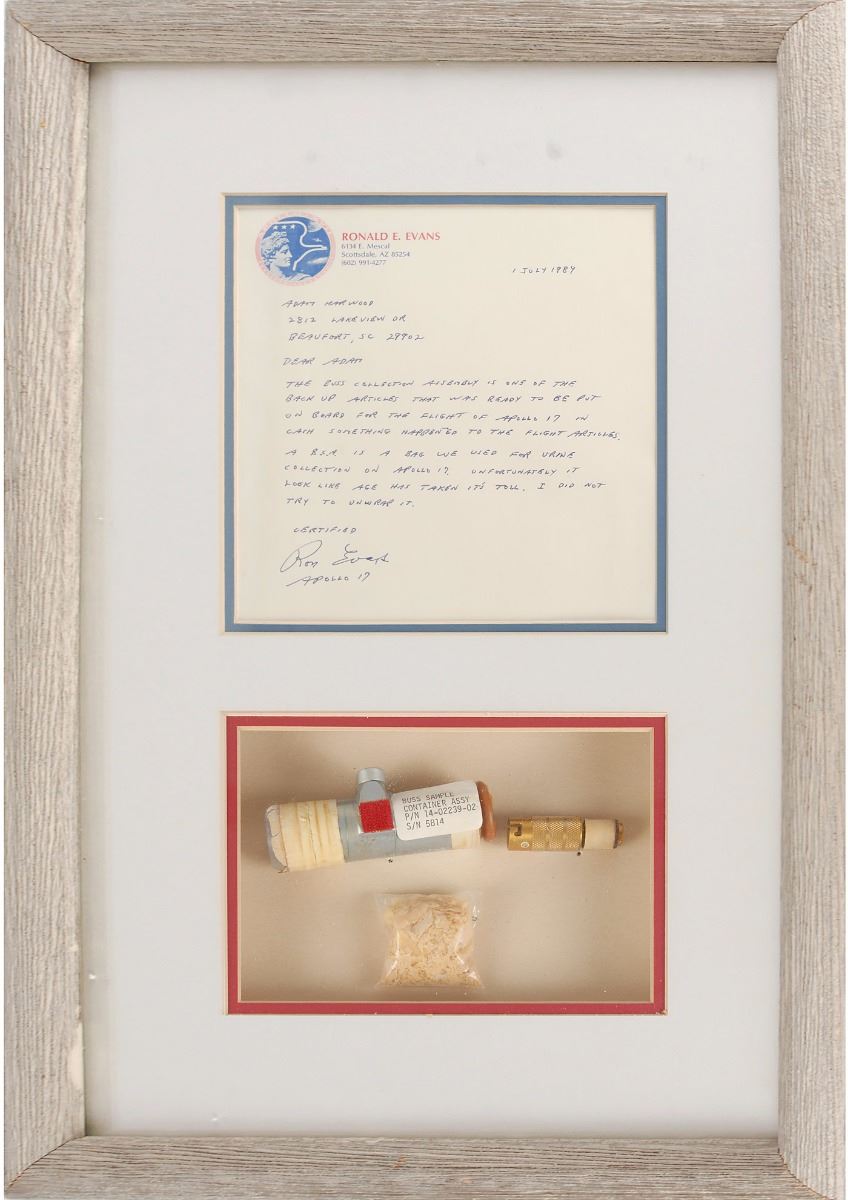 RONALD E. EVANS
6134 E. Mescal
Scottsdale, AZ 85254
(602) 991-4277
1 JULY 1989
ADAM HARWOOD
2812 LAKEVIEW DR
BEAUFORT, SC 29902
DEAR ADAM
THE BUSS COLLECTION ASSEMBLY IS ONE OF THE
BACK UP ARTICLES THAT WAS READY TO BE PUT
ON BOARD FOR THE FLIGHT OF APOLLO 17 IN
CASH SOMETHING HAPPENED TO THE FLIGHT ARTICLES.
A B.S.R IS A BAG WE USED FOR URINE
COLLECTION ON APOLLO 17. UNFORTUNATELY IT
LOOK LIKE AGE HAS TAKEN IT'S TOLL. I DID NOT
TRY TO UNWRAP IT.
CERTIFIED
Ron Evans
APOLLO 17
BUSS SAMPLE
CONTAINER ASSY
P/N 14-02239-02
S/N 5814